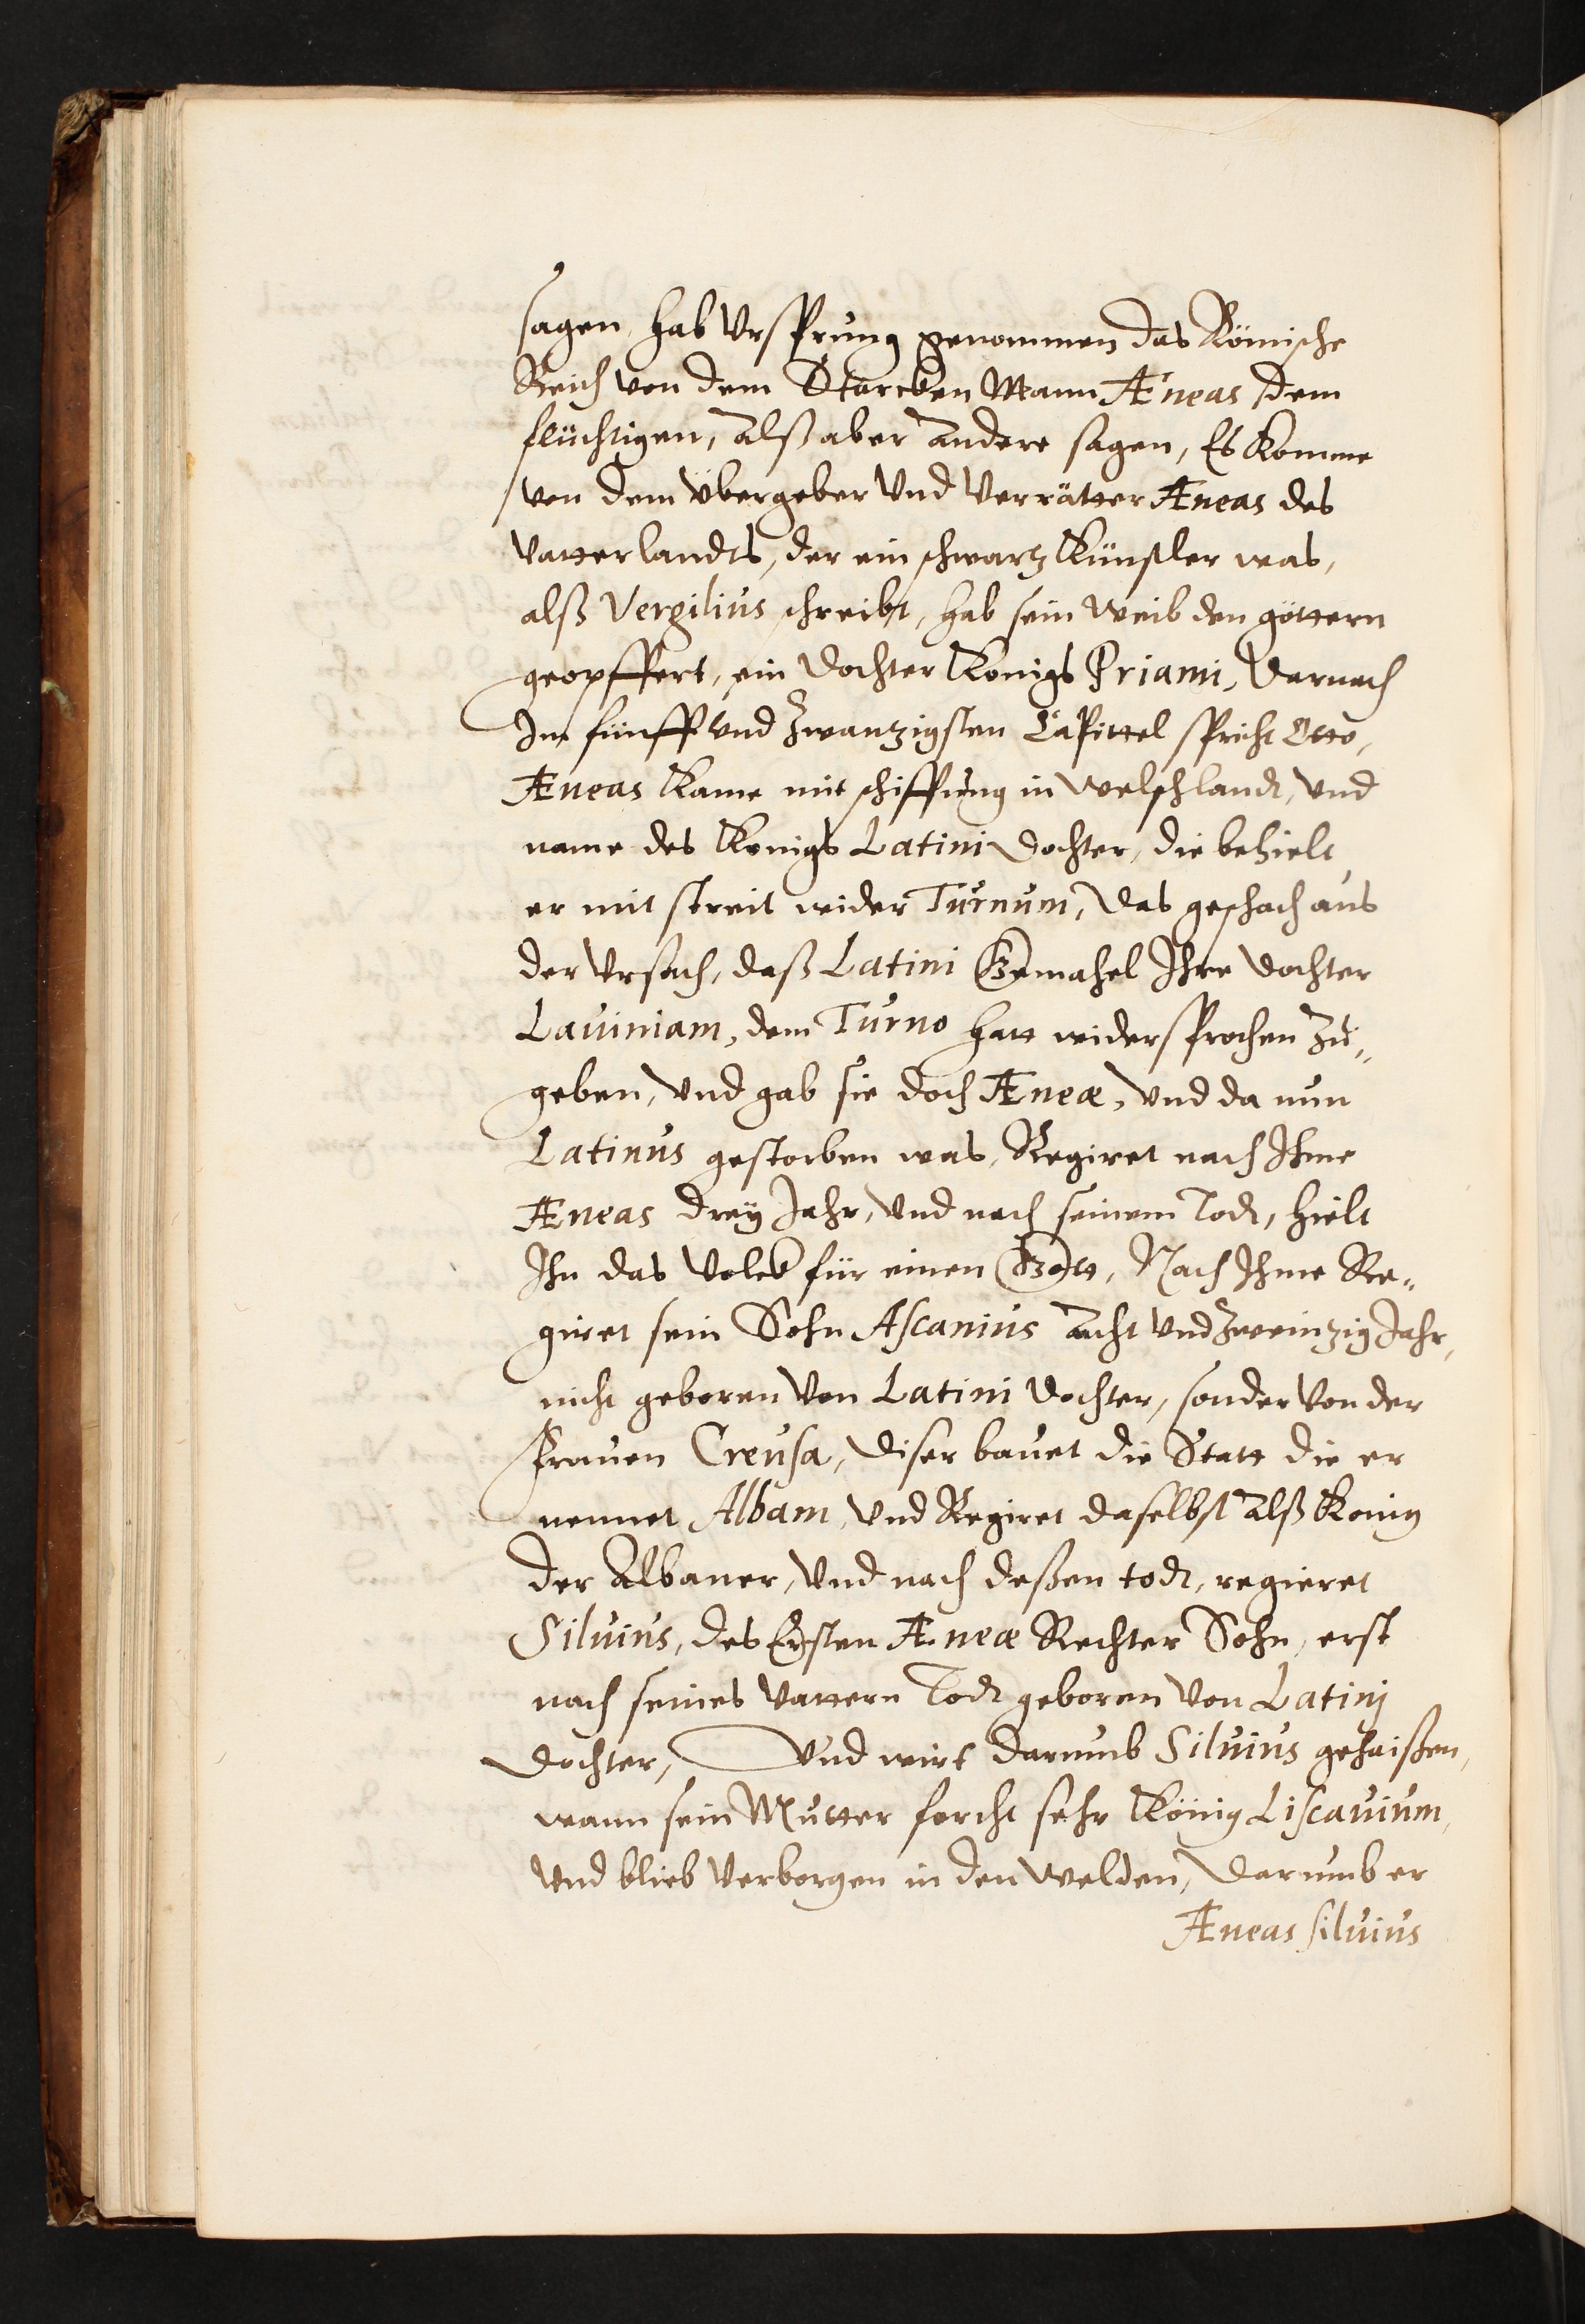 sagen, hab Vrsprung genommen das Römische
Reich von dem Starcken Mann Æneas dem
flüchtigen, alß aber andere sagen, Es komme
von dem übergeber Vnd Verrätter Æneas des
Vatterlandts, der ein schwartz Künstler was,
alß Vergilius schreibt, hab sein Weib den göttern
geopffert, ein dochter Konigs Priami, Darnach
Im fünff vnd Zwantzigsten Capittel spricht Otto,
Æneas kame mit schiffung in welschlandt, Vnd
name des Konigs Latini dochter, die behielt
er mit streit wider Turnum, Das geschach aus
der Vrsach, daß Latini Gemahel Ihre dochter
Lauiniam, dem Turno hatt widersprochen zu„
geben, Vnd gab sie doch Æneæ, Vnd da nun
Latinus gestorben was, Regiret nach Ihme
Æneas drey Jahr, Vnd nach seinem Todt, hielt
Ihn das Volck für einen Gott, Nach Ihme Re„
giret sein Sohn Ascanius acht Vnd zweintzig Jahr,
nicht geboren Von Latini dochter, sonder Von der
Frauen Creusa, diser bauet die Statt die er
nennet Albam, Vnd Regiret daselbst alß Konig
der Albaner, Vnd nach deßen todt, regieret
Siluius, des Ersten Æneæ Rechter Sohn, erst
nach seines Vattern Todt geboren Von Latinj
dochter, Vnd wirt darumb Siluius gehaißen,
wann sein Mutter forcht sehr König Liscauium,
Vnd blieb Verborgen in den Welden, Darumb er
Æneas siluius